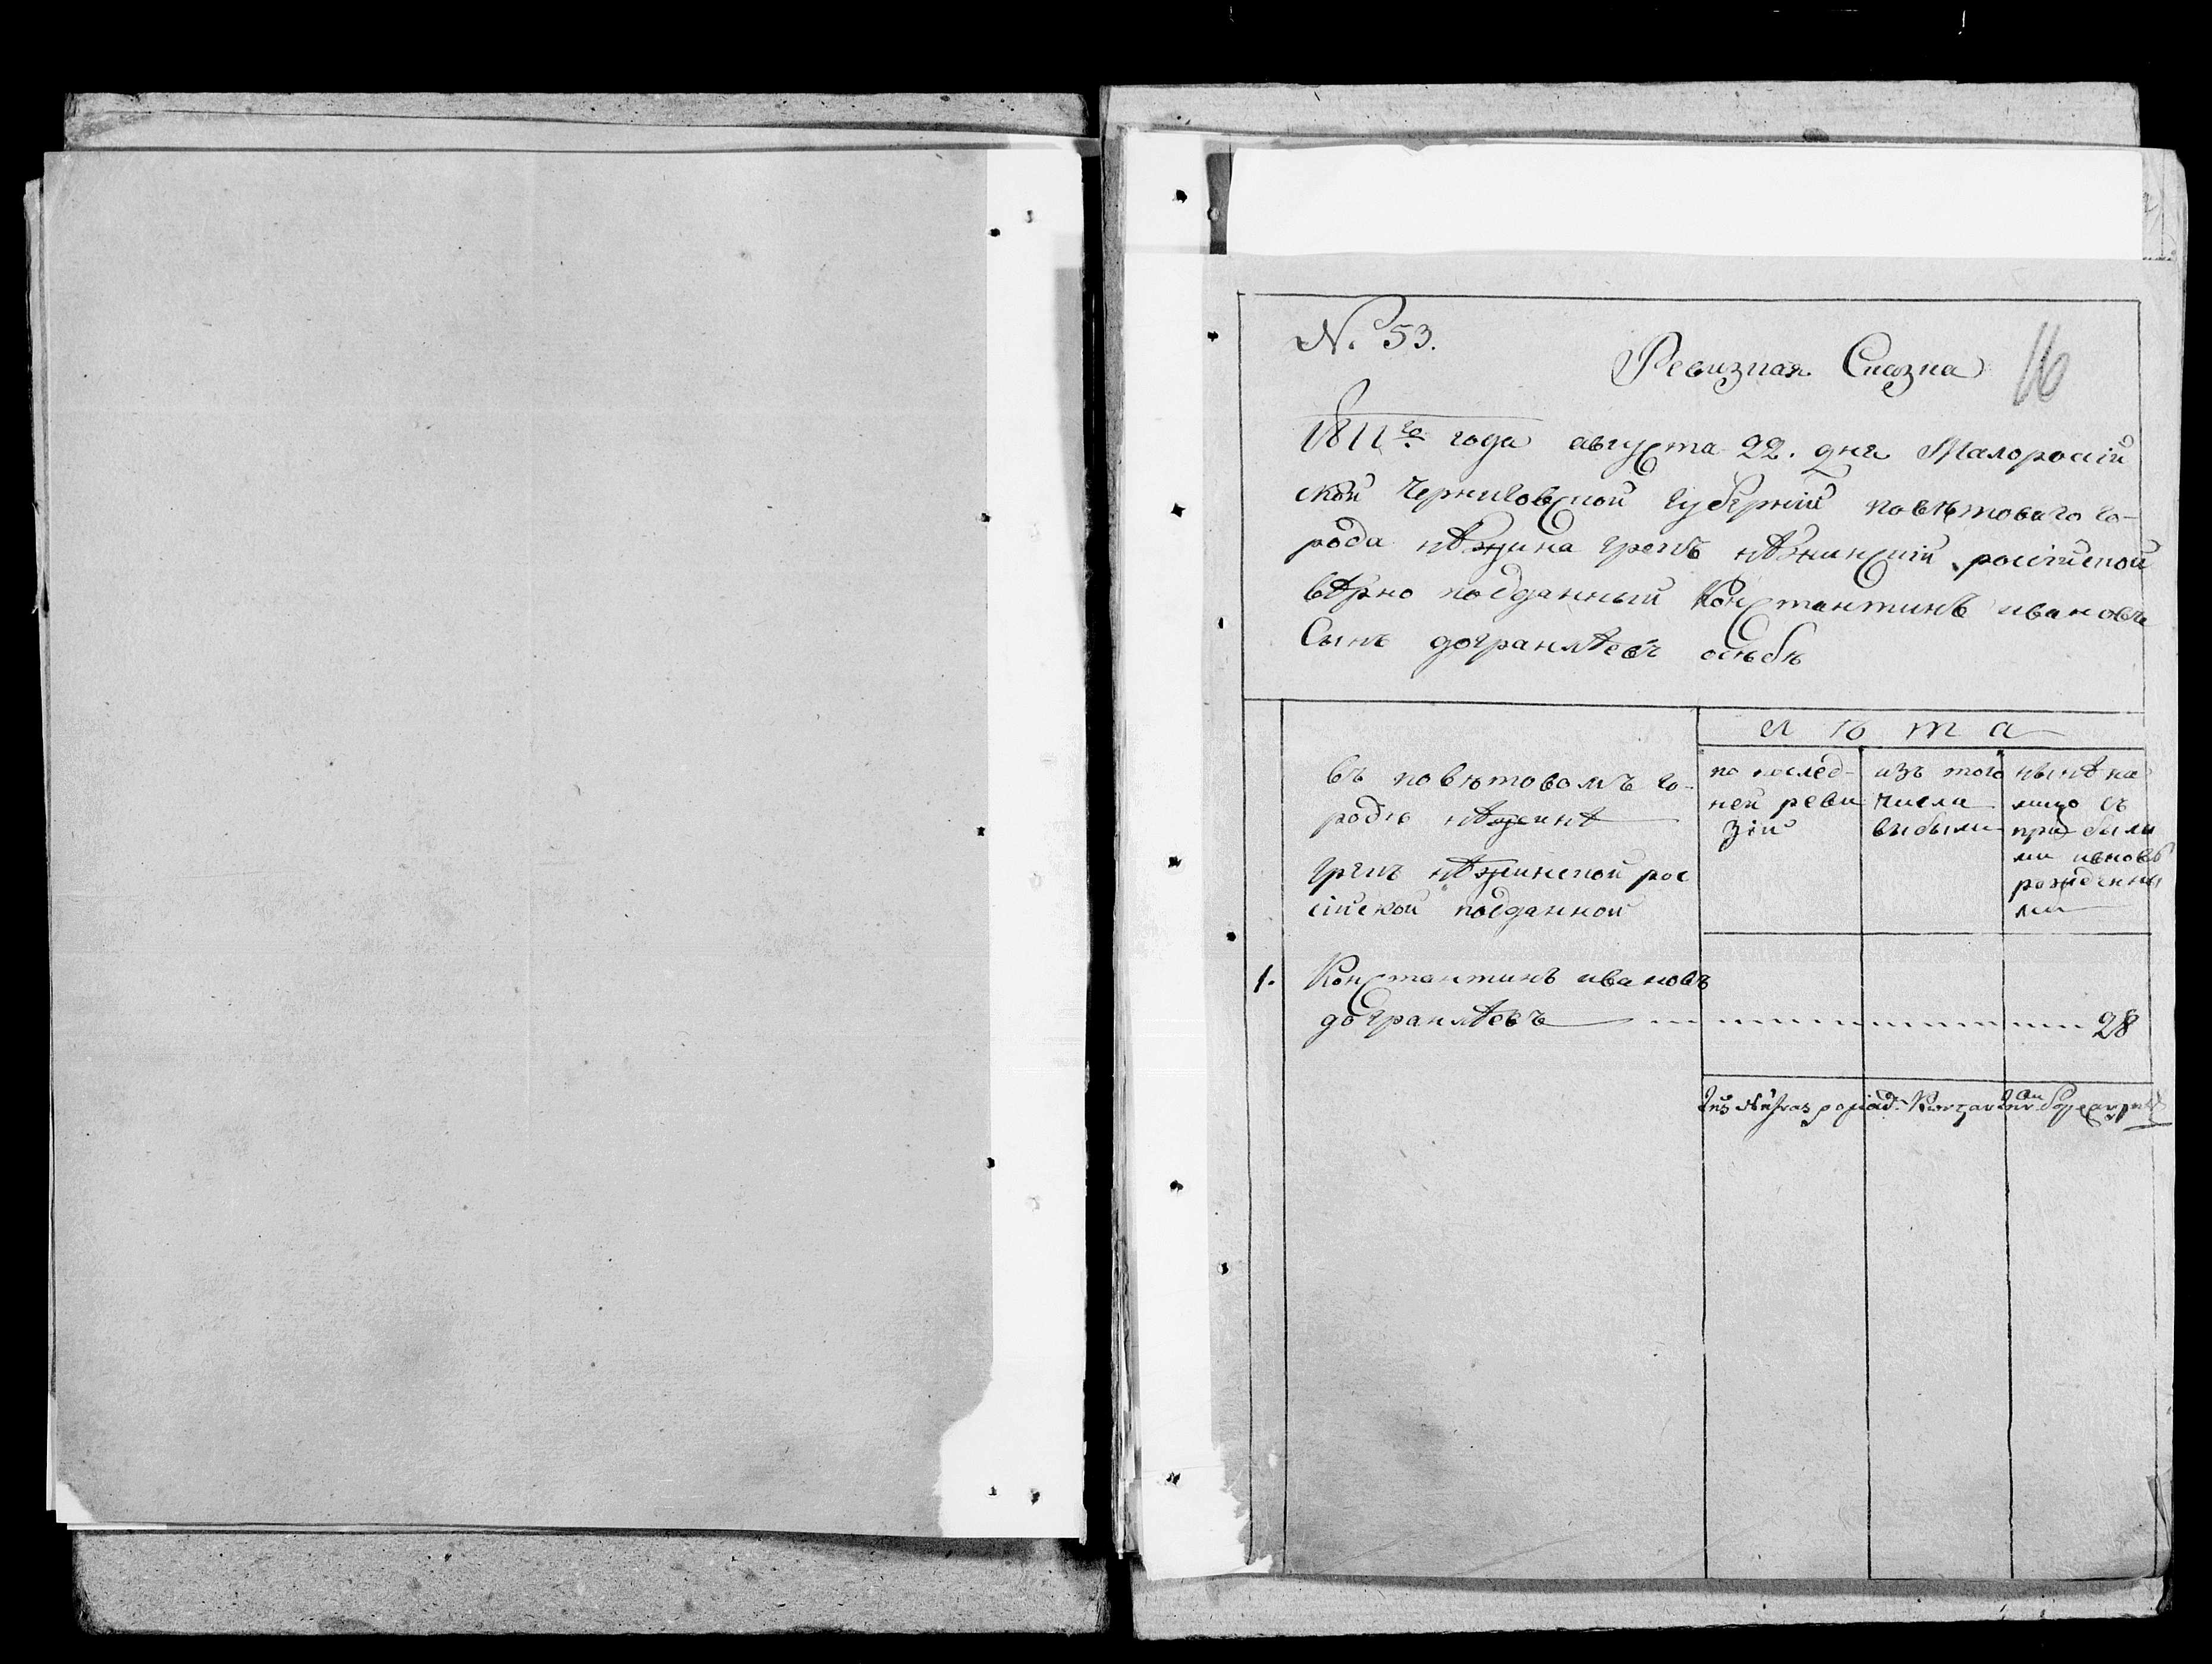 № 53.
Ревизная Сказка
16
1811го года августа 22. дня Малоросій
ской Черниговской губерніи повѣтоваго го-
рода нѣжина грекъ нѣжинскій російской
вѣрно подданный Константинъ ивановъ
Сынъ дограмлѣевъ осѣбѣ
лѣта
въ повѣтовомъ го-
родѣ нѣжинѣ
грекъ нѣжинской рос
сійской подданной
по послед-
ней реви
зіи
изъ того
числа
выбыли
нынѣ на
лицо съ
прибыли
ми ивновь
рожденны
ми
1. Константинъ ивановъ
догранлѣевъ 28